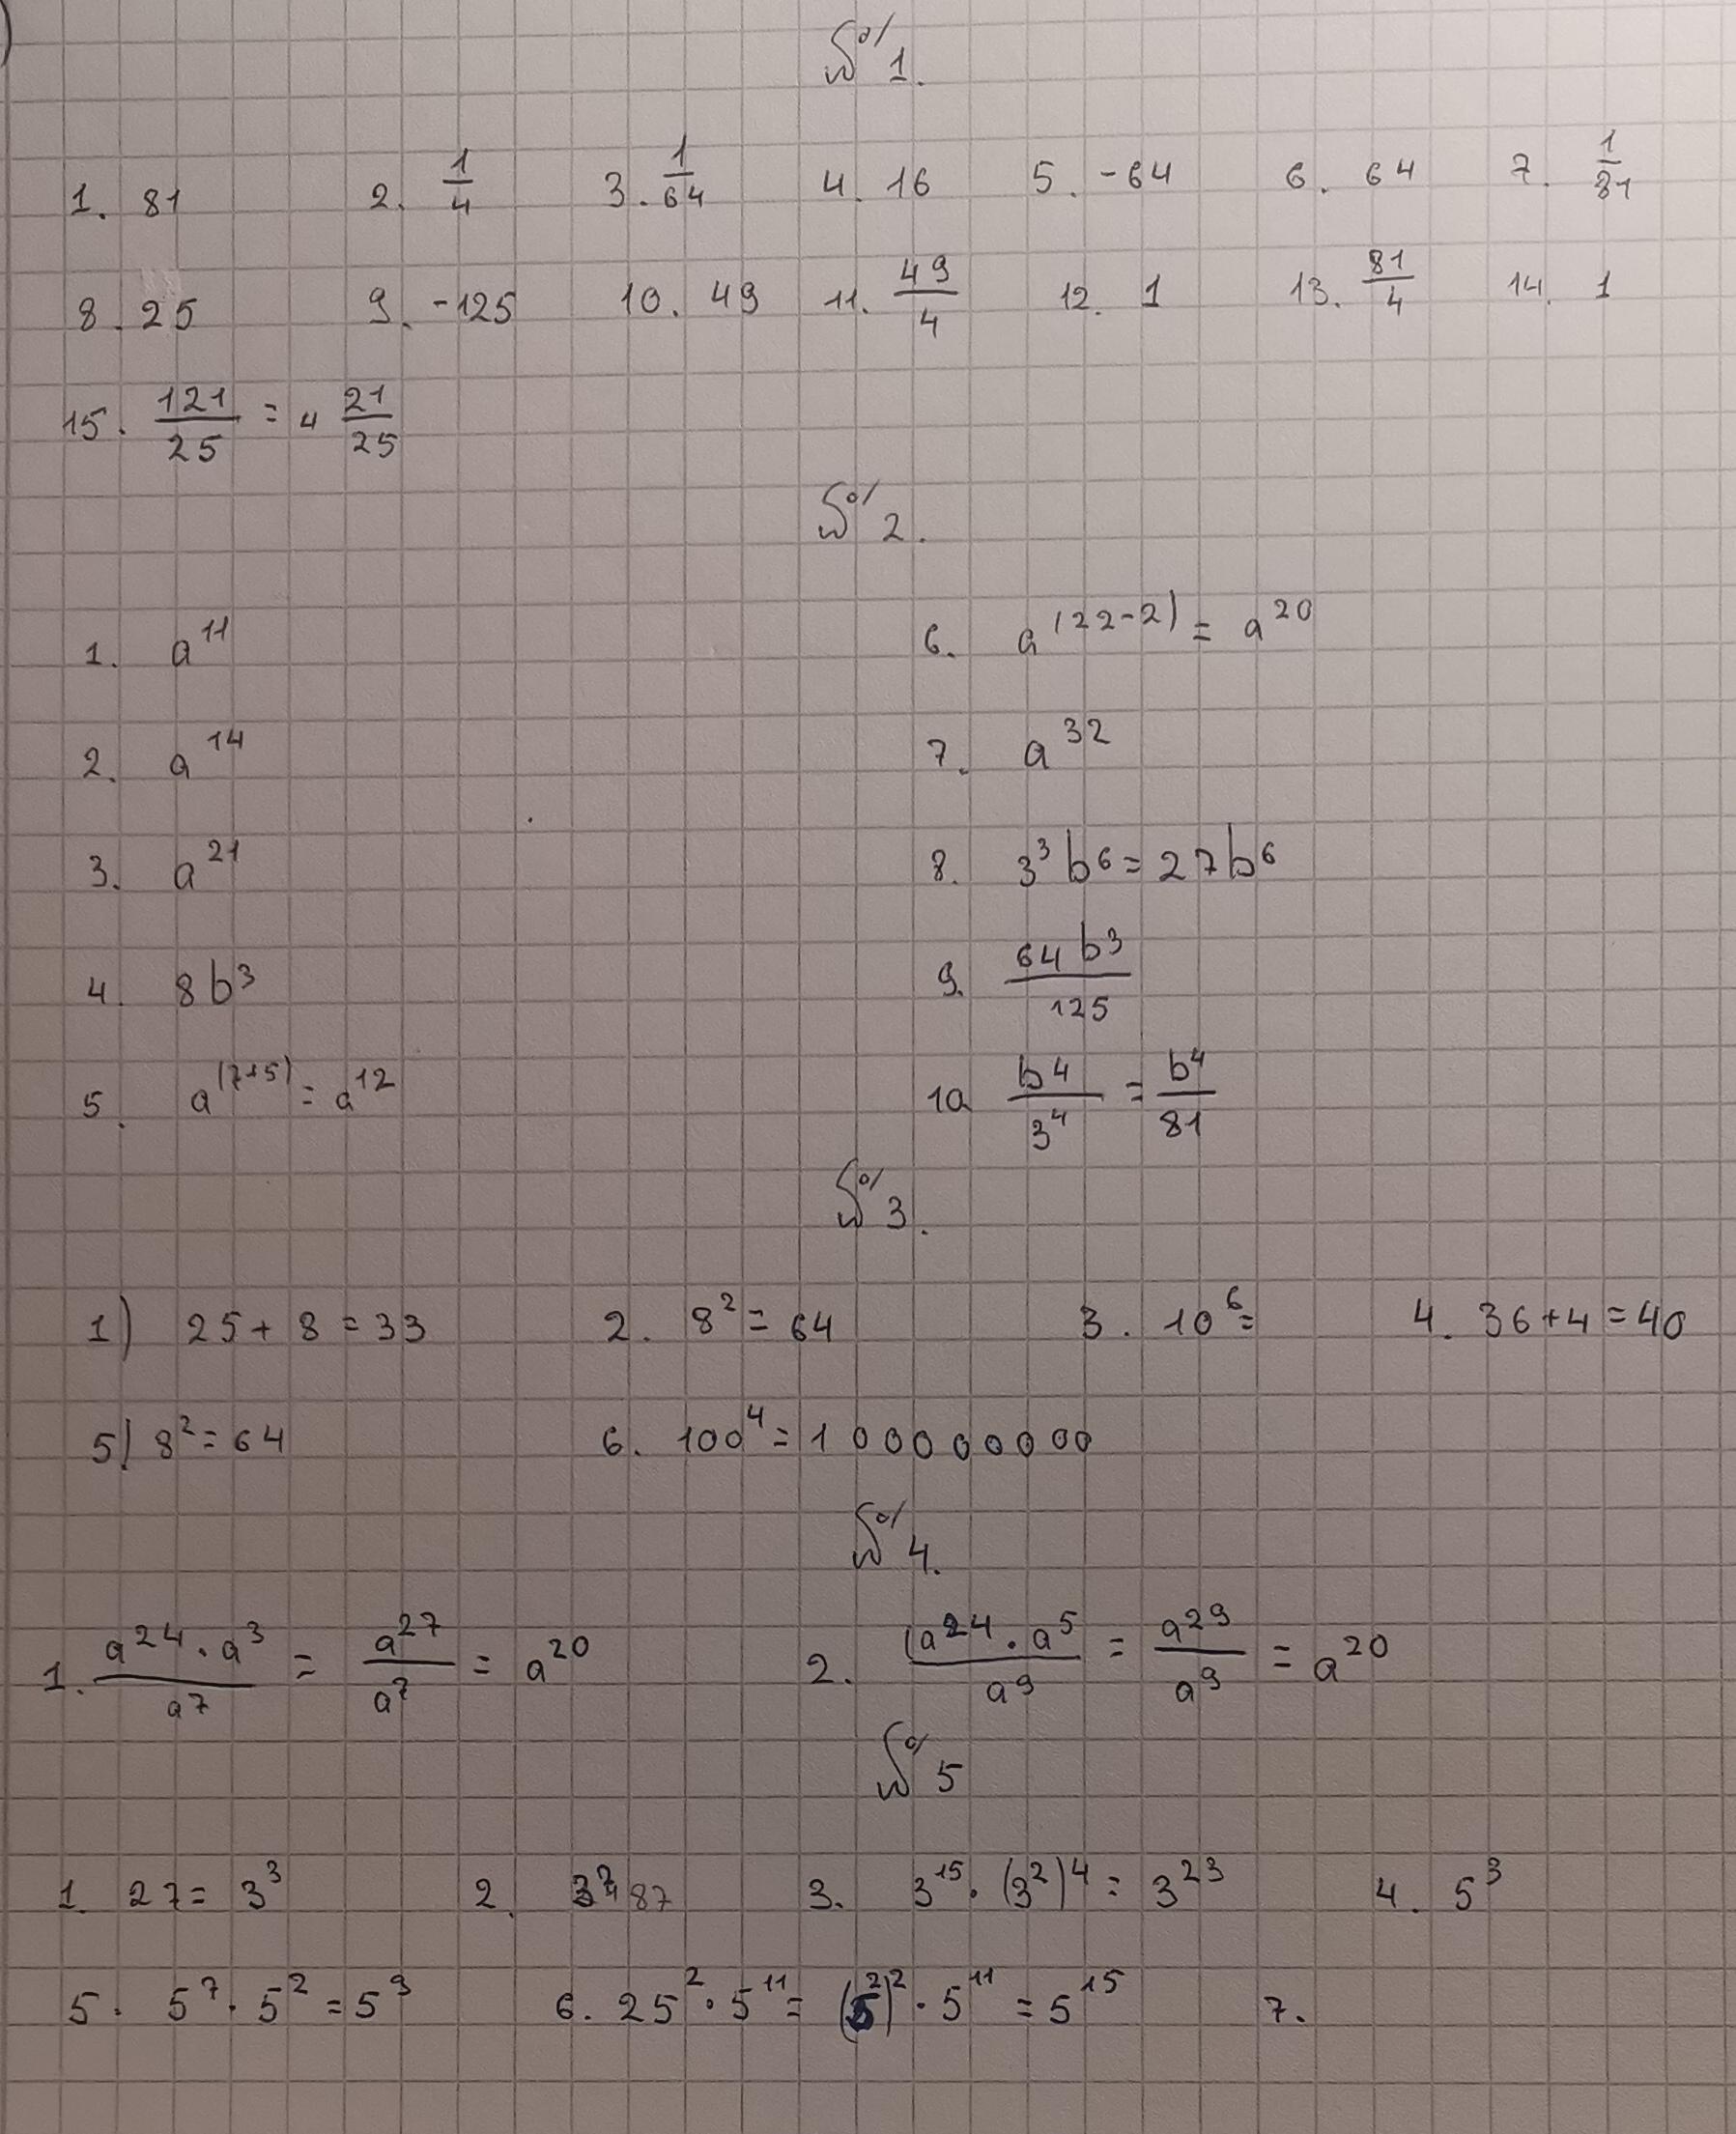 )
დ°/ 1.
1. 81 2. 1/4 3. 1/64 4. 16 5. -64 6. 64 7. 1/81
8. 25 9. -125 10. 49 11. 49/4 12. 1 13. 81/4 14. 1
15. 121/25 = 4 21/25
დ°/ 2.
1. a^11 6. a^(22-2) = a^20
2. a^14 7. a^32
3. a^21 8. 3^3 b^6 = 27b^6
4. 8b^3 9. 64b^3/125
5. a^(7+5) = a^12 10 b^4/3^4 = b^4/81
დ°/ 3.
1) 25 + 8 = 33 2. 8^2 = 64 3. 10^6 = 4. 36 + 4 = 40
5) 8^2 = 64 6. 100^4 = 100000000
დ°/ 4.
1. a^24 · a^3/a^7 = a^27/a^7 = a^20 2. (a^24 · a^5/a^9 = a^29/a^9 = a^20
დ°/ 5
1. 27 = 3^3 2. 3. 3^15 · (3^2)^4 = 3^23 4. 5^3
5. 5^7 · 5^2 = 5^9 6. 25^2 · 5^11 = (5^2)^2 · 5^11 = 5^15 7.